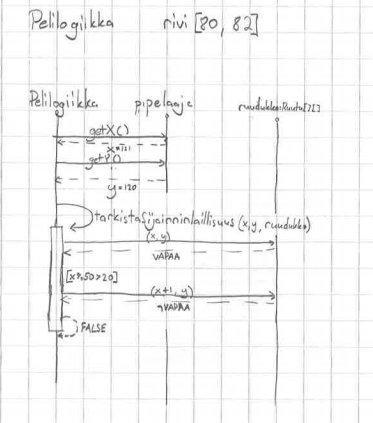 Pelilogiikka rivi [80, 82]
Pelilogiikka pipelaaja ruudukko:Ruutu[][]
getX()
x=111
getY()
y=120
tarkistaSijainninLaillisuus (x,y, ruudukko)
(x,y)
VAPAA
[x%50>20]
(x+1, y)
¬VAPAA
FALSE